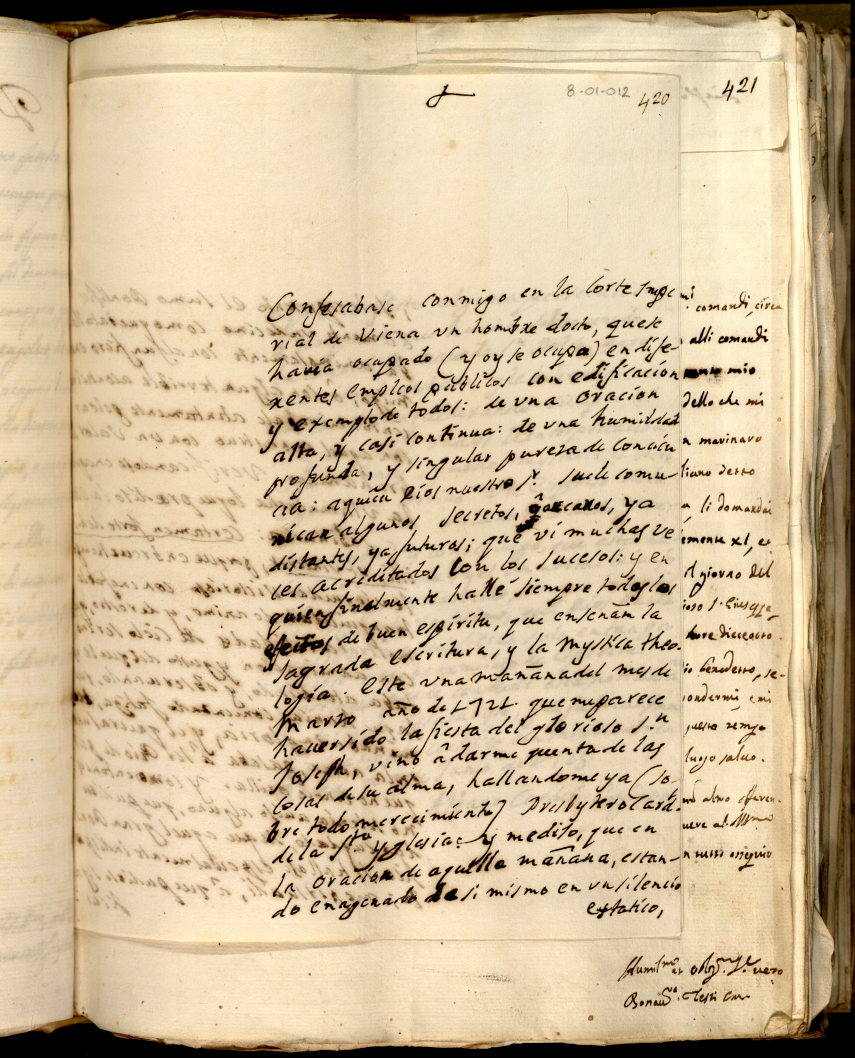 8-01-012
420
421
Confesabase conmigo en la Corte Impe
rial de Viena vn hombre docto, que se
havia ocupado (y oy se ocupa) en dife-
rentes empleos publicos con edificacion
y exemplo de todos: de vna oracion
alta, y casi continua: de vna humildad
profunda, y singular pureza de concien
cia: a quien Dios nuestro Sr. suele comu-
nicar algunos secretos, ya
distantes, ya futuros; que vi muchas ve
ces acreditados con los sucesos: y en
quien finalmente hallé siempre todos los
efectos de buen espiritu, que enseñan la
sagrada escritura, y la Mystica theo-
logia. Este vna mañana del mes de
Marzo año de 1721 que me parece
haver sido la fiesta del glorioso S.n
Joseph, vino â darme quenta de las
cosas de su alma, hallandome ya (so-
bre todo merecimiento) Presbytero Card.
de la Sta Yglesia: y me dijo, que en
la oracion de aquella mañana, estan-
do enagenado de si mismo en vn silencio
extatico,
comandi, circa
alli comandi
mio
dello che mi
n marinaro
liano detto
a li domandai
emente XI, e
il giorno del
ioso S. Giuseppe,
hore dicceotto.
io Benedetto, se-
ondermi, e mi
questo tempo
luogo saluo.
n tutto ossequio
Humil.mo